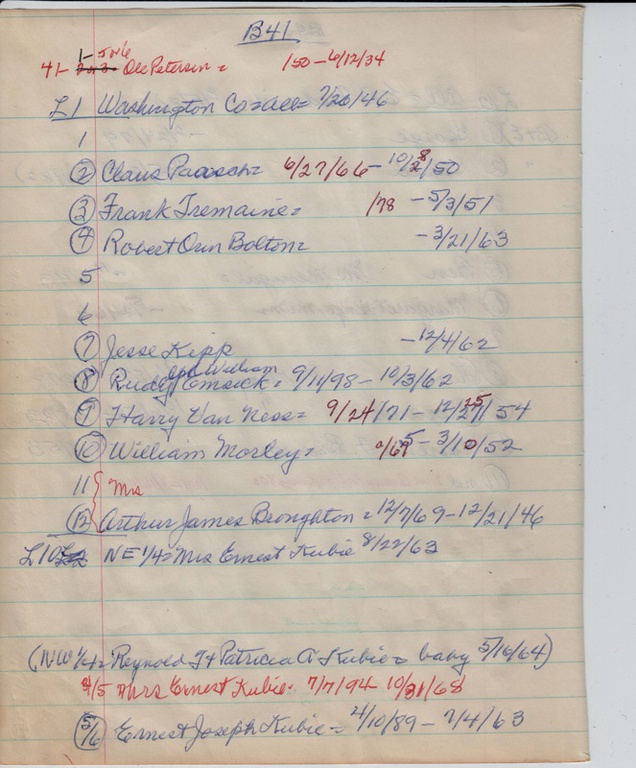 B41
1- 5 or 6
41- 2 or 3 Ole Peterson = /50 - 6/12/34
L1 Washington Co = All = 7/26/46
1
2 Claus Paasch = 6/27/66 - 10/28/50
3 Frank Tremaine = /78 - 5/3/51
4 Robert Orin Bolton = - 3/21/63
5
6
7 Jesse Kipp - 12/4/62
William
8 Rudy Emsick = 9/11/98 - 10/3/62
9 Harry Van Ness = 9/24/71 - 12/25/54
10 William Morley = - 3/10/52
11 { Mrs
12 Arthur James Broughton = 12/7/69 - 12/21/46
L10 NE 1/4 = Mrs Ernest Kubie 8/22/63
(NW 1/4 = Reynold J + Patricia A Kubie = baby 5/16/64)
4/5 Mrs Ernest Kubie = 7/7/94 10/31/68
5/6 Ernest Joseph Kubie = 2/10/89 - 7/4/63